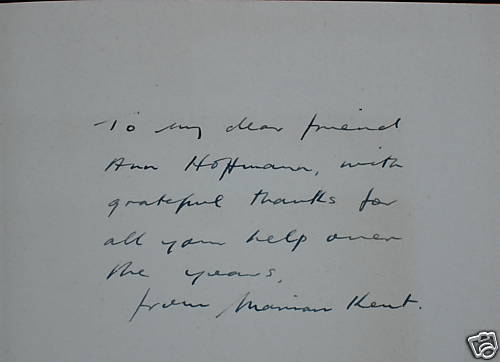 To my dear friend
Ann Hoffmann, with
grateful thanks for
all your help over
the years,
from Marian Kent.